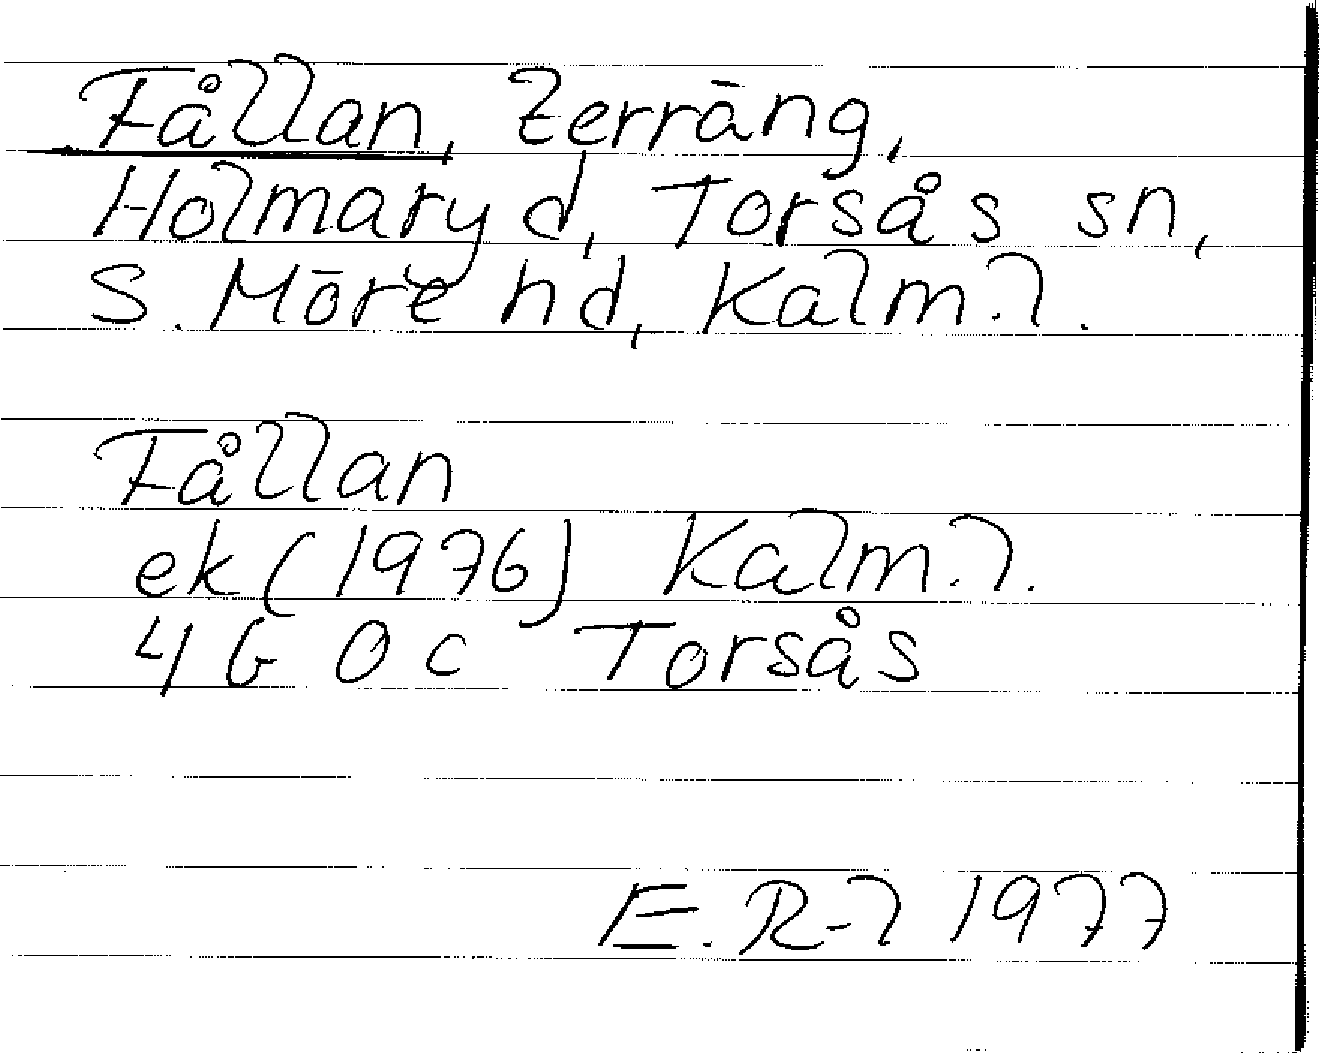 Fållan, terräng,
Holmaryd, Torsås sn,
S. Möre hd, Kalm. l.
Fållan
ek (1976) Kalm. l.
4G 0c Torsås
E. R-l 1977